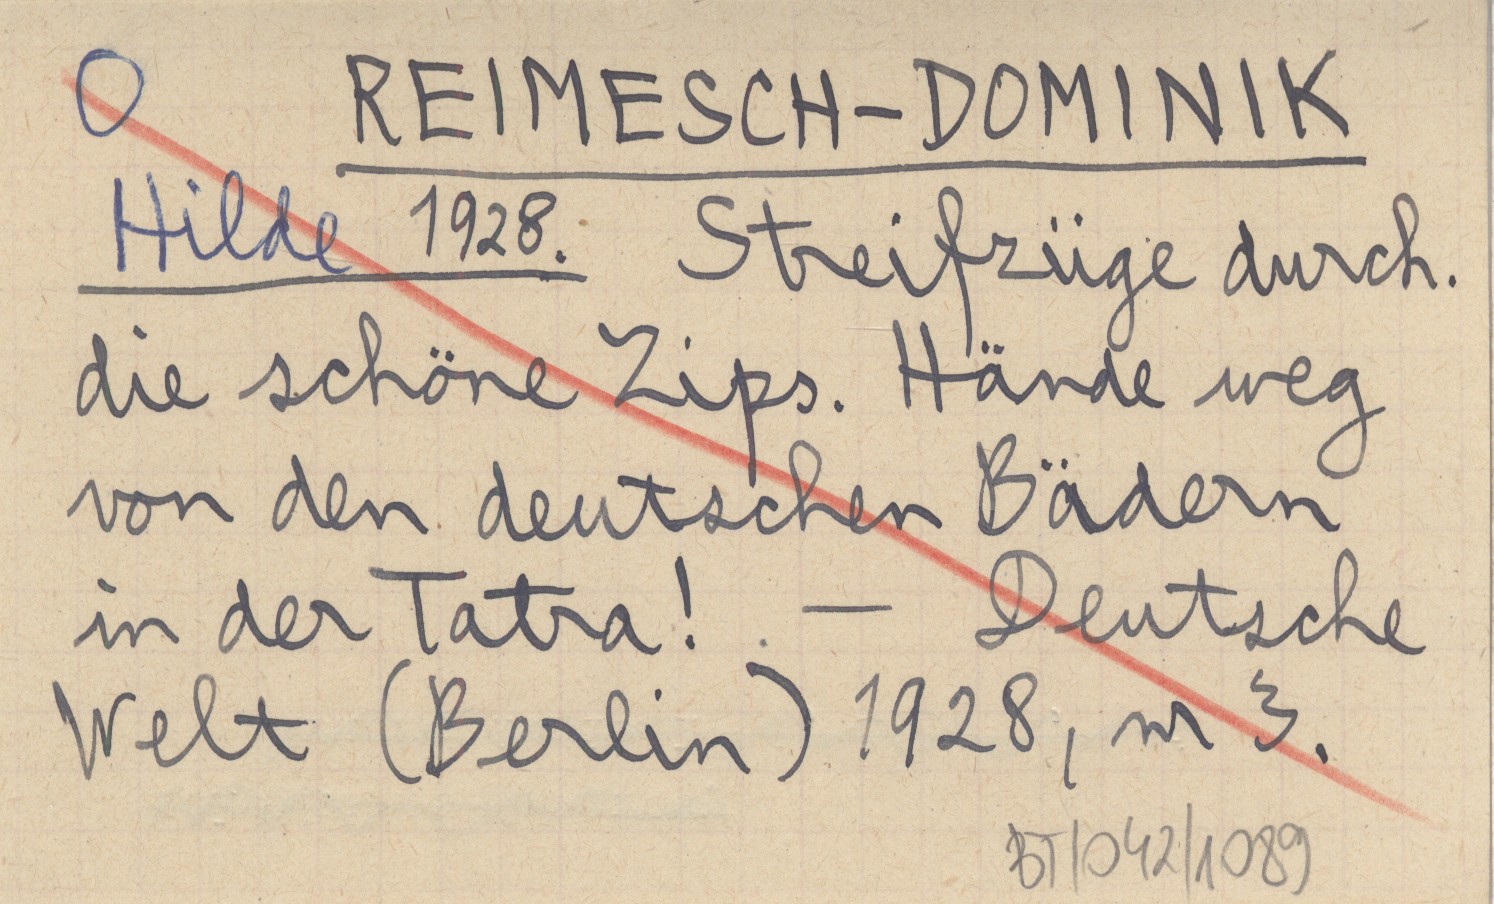 O REIMESCH-DOMINIK
Hilde 1928. Streifzüge durch.
die schöne Zips. Hände weg
von den deutschen Bädern
in der Tatra! — Deutsche
Welt (Berlin) 1928, nr 3.
BT/042/1089